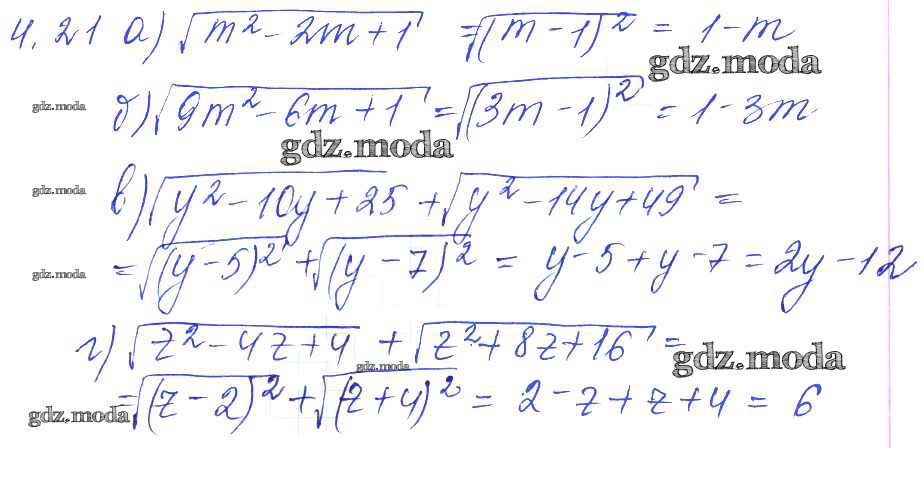 4.21 а) √(m² - 2m + 1) = √(m - 1)² = 1 - m
gdz.moda
gdz.moda б) √(9m² - 6m + 1) = √(3m - 1)² = 1 - 3m
gdz.moda
gdz.moda в) √(y² - 10y + 25) + √(y² - 14y + 49) =
gdz.moda = √(y - 5)² + √(y - 7)² = y - 5 + y - 7 = 2y - 12
г) √(z² - 4z + 4) + √(z² + 8z + 16) =
gdz.moda gdz.moda
gdz.moda = √(z - 2)² + √(z + 4)² = 2 - z + z + 4 = 6